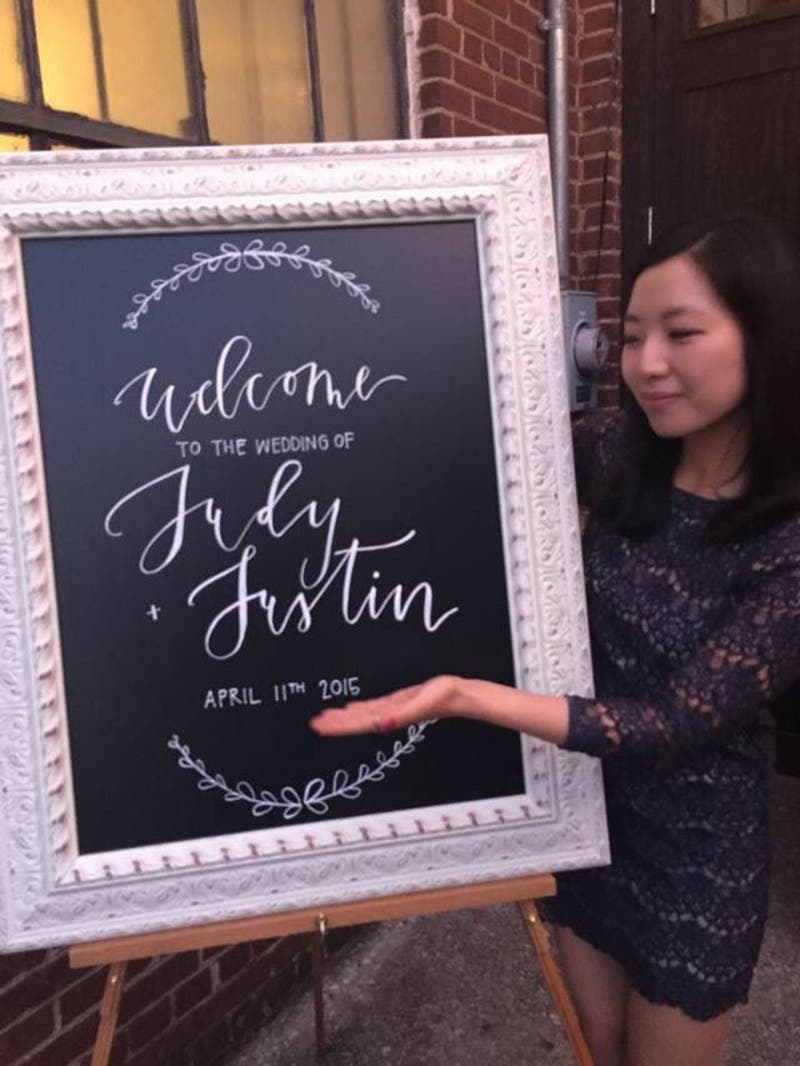 Welcome
TO THE WEDDING OF
Judy
+ Justin
APRIL 11TH 2015